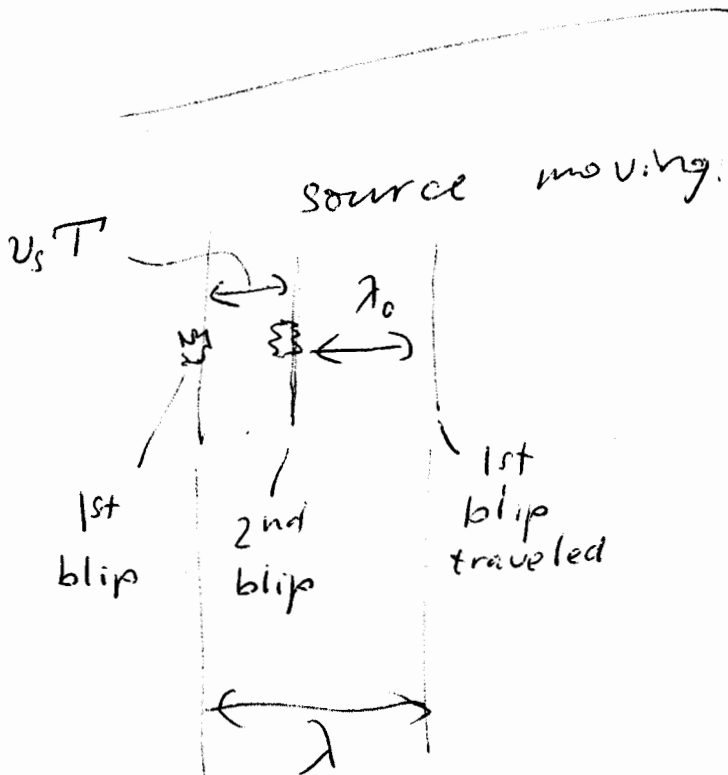 source moving.
v_s T
λ_o
1st
blip
2nd
blip
1st
blip
traveled
λ